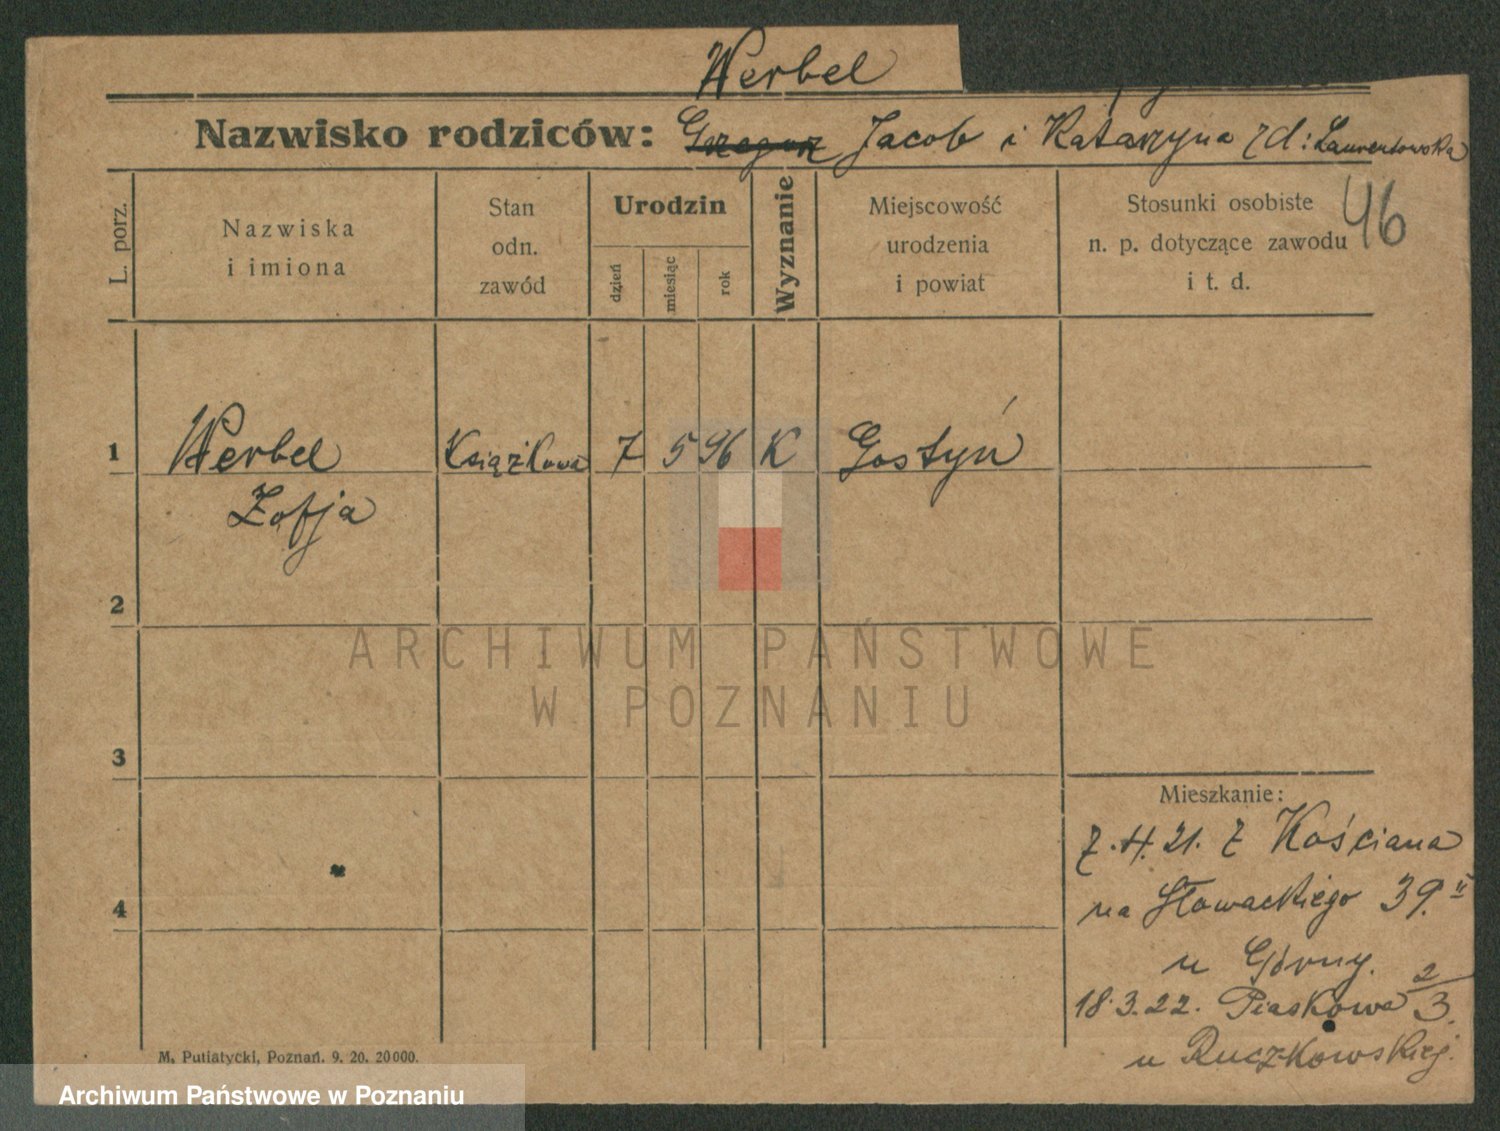 Werbel
Nazwisko rodziców: Grzegorz Jacob i Katarzyna zd: Laurentowska
46
L. porz.
Nazwiska
i imiona
Stan
odn.
zawód
Urodzin
dzień
miesiąc
rok
Wyznanie
Miejscowość
urodzenia
i powiat
Stosunki osobiste
n. p. dotyczące zawodu
i t. d.
1 Werbel Książkowa 7 5 96 K Gostyń
Zofja
2
3
4
Mieszkanie:
7.4.21. z Kościana
na Słowackiego 39. II
u Górny.
18.3.22. Piaskowa 2/3.
u Ruczkowskiej.
M. Putiatycki, Poznań. 9. 20. 20000.
ARCHIWUM PAŃSTWOWE
W POZNANIU
Archiwum Państwowe w Poznaniu